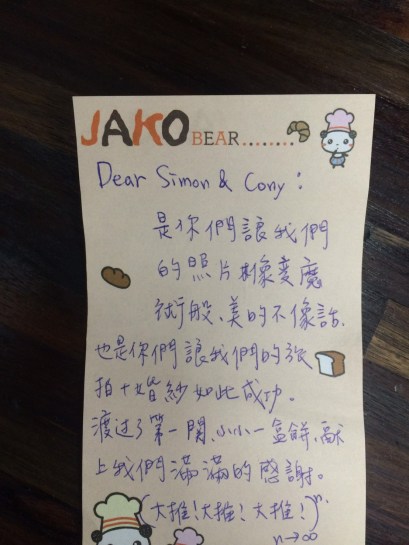 JAKO BEAR........
Dear Simon & Cony:
是你們讓我們
的照片樣像變魔
術般、美的不像話、
也是你們讓我們的旅
拍+婚紗如此成功。
渡过了第一關、小小一盒餅、獻
上我們滿滿的感謝。
(大推!大推!大推!)ⁿ
n→∞